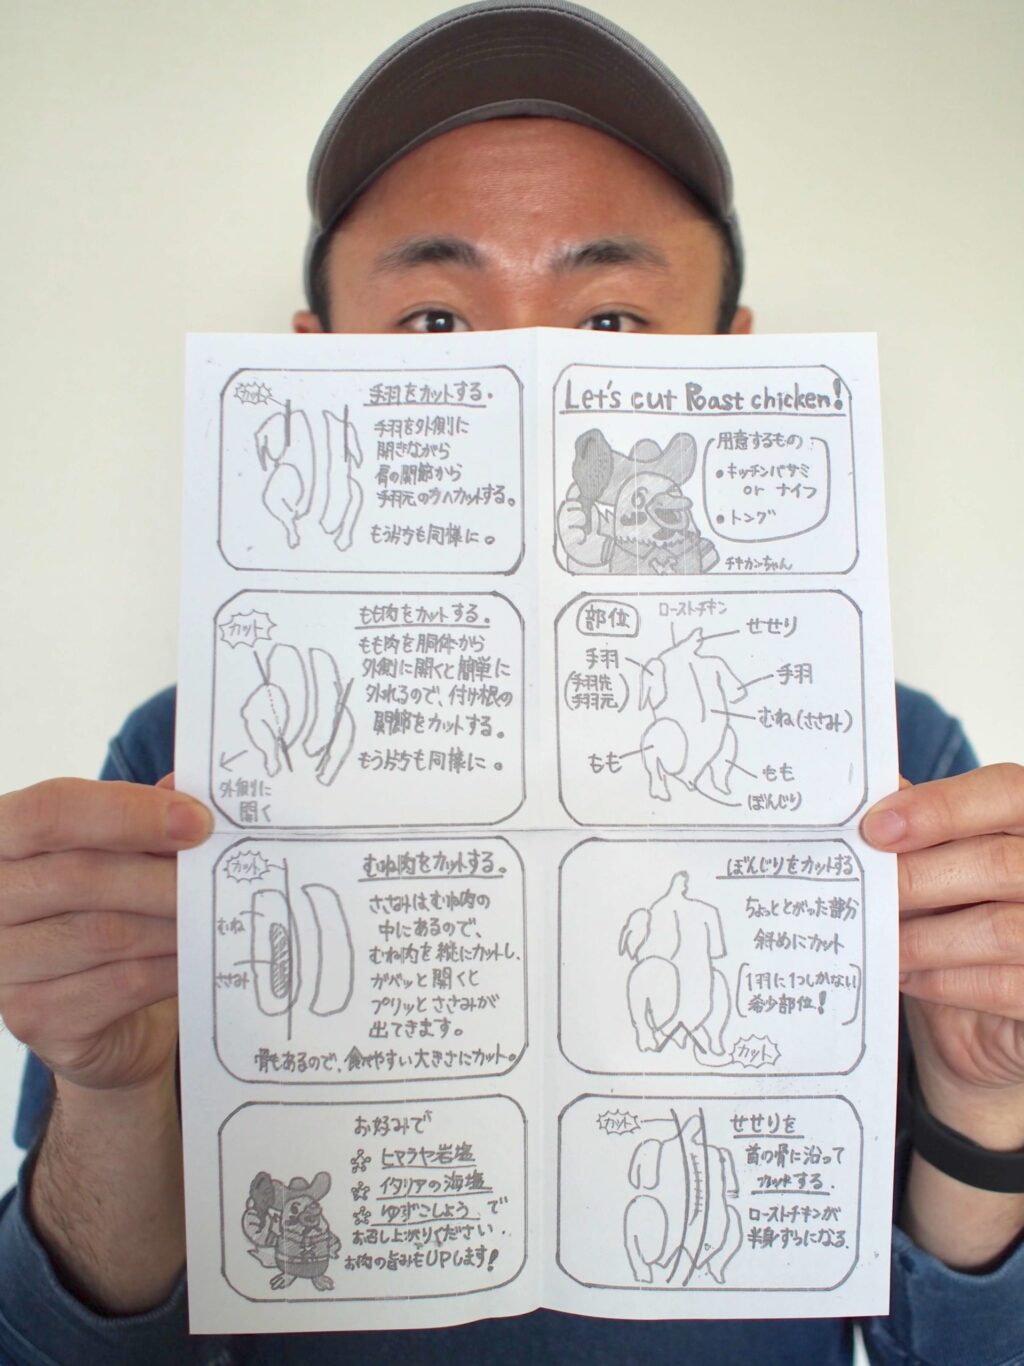 Let's cut Roast chicken!
用意するもの
・キッチンバサミ
or ナイフ
・トング
チキカンちゃん
部位
ローストチキン
せせり
手羽
(手羽先
手羽元)
手羽
むね(ささみ)
もも
もも
ぼんじり
ぼんじりをカットする
ちょっととがった部分
斜めにカット
(1羽に1つしかない
希少部位!)
カット
カット
せせりを
首の骨に沿って
カットする.
ローストチキンが
半身ずつになる.
カット
手羽をカットする。
手羽を外側に
開きながら
肩の関節から
手羽元の方へカットする。
もう片方も同様に。
カット
もも肉をカットする。
もも肉を胴体から
外側に開くと簡単に
外れるので、付け根の
関節をカットする。
もう片方も同様に。
外側に
開く
カット
むね肉をカットする。
むね
ささみ
ささみはむね肉の
中にあるので、
むね肉を縦にカットし、
ガバッと開くと
プリッとささみが
出てきます。
骨もあるので、食べやすい大きさにカット。
お好みで
ヒマラヤ岩塩
イタリアの海塩
ゆずこしょうで
お召し上がりください.
お肉の旨みもUPします!